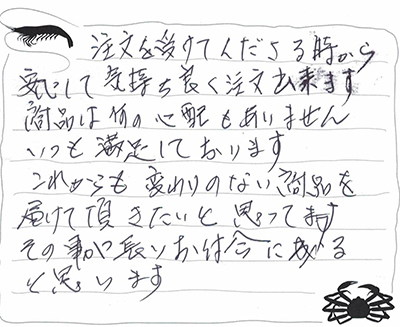 注文を受けてくださる時から
安心して気持ち良く注文出来ます
商品は何の心配もありません
いつも満足しております
これからも変わりのない商品を
届けて頂きたいと思ってます
その事が長いお付合に成る
と思います